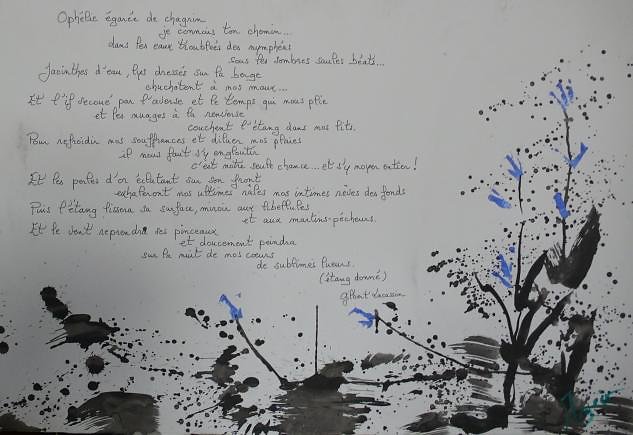 Ophélie égarée de chagrin
je connais ton chemin...
dans les eaux troublées des nymphéas
sous les sombres saules béats...
Jacinthes d'eau, lys dressés sur la berge
chuchotent à nos maux...
Et l'if secoué par l'averse et le temps qui nous plie
et les nuages à la renverse
couchent l'étang dans nos lits.
Pour refroidir nos souffrances et diluer nos pluies
il nous faut s'y engloutir
c'est notre seule chance... et s'y noyer entier !
Et les perles d'or éclatant sur son front
exhaleront nos ultimes râles nos intimes rêves des fonds
Puis l'étang lissera sa surface, miroir aux libellules
et aux martins-pêcheurs.
Et le vent reprendra ses pinceaux
et doucement peindra
sur la nuit de nos cœurs
de sublimes lueurs.
(étang donné)